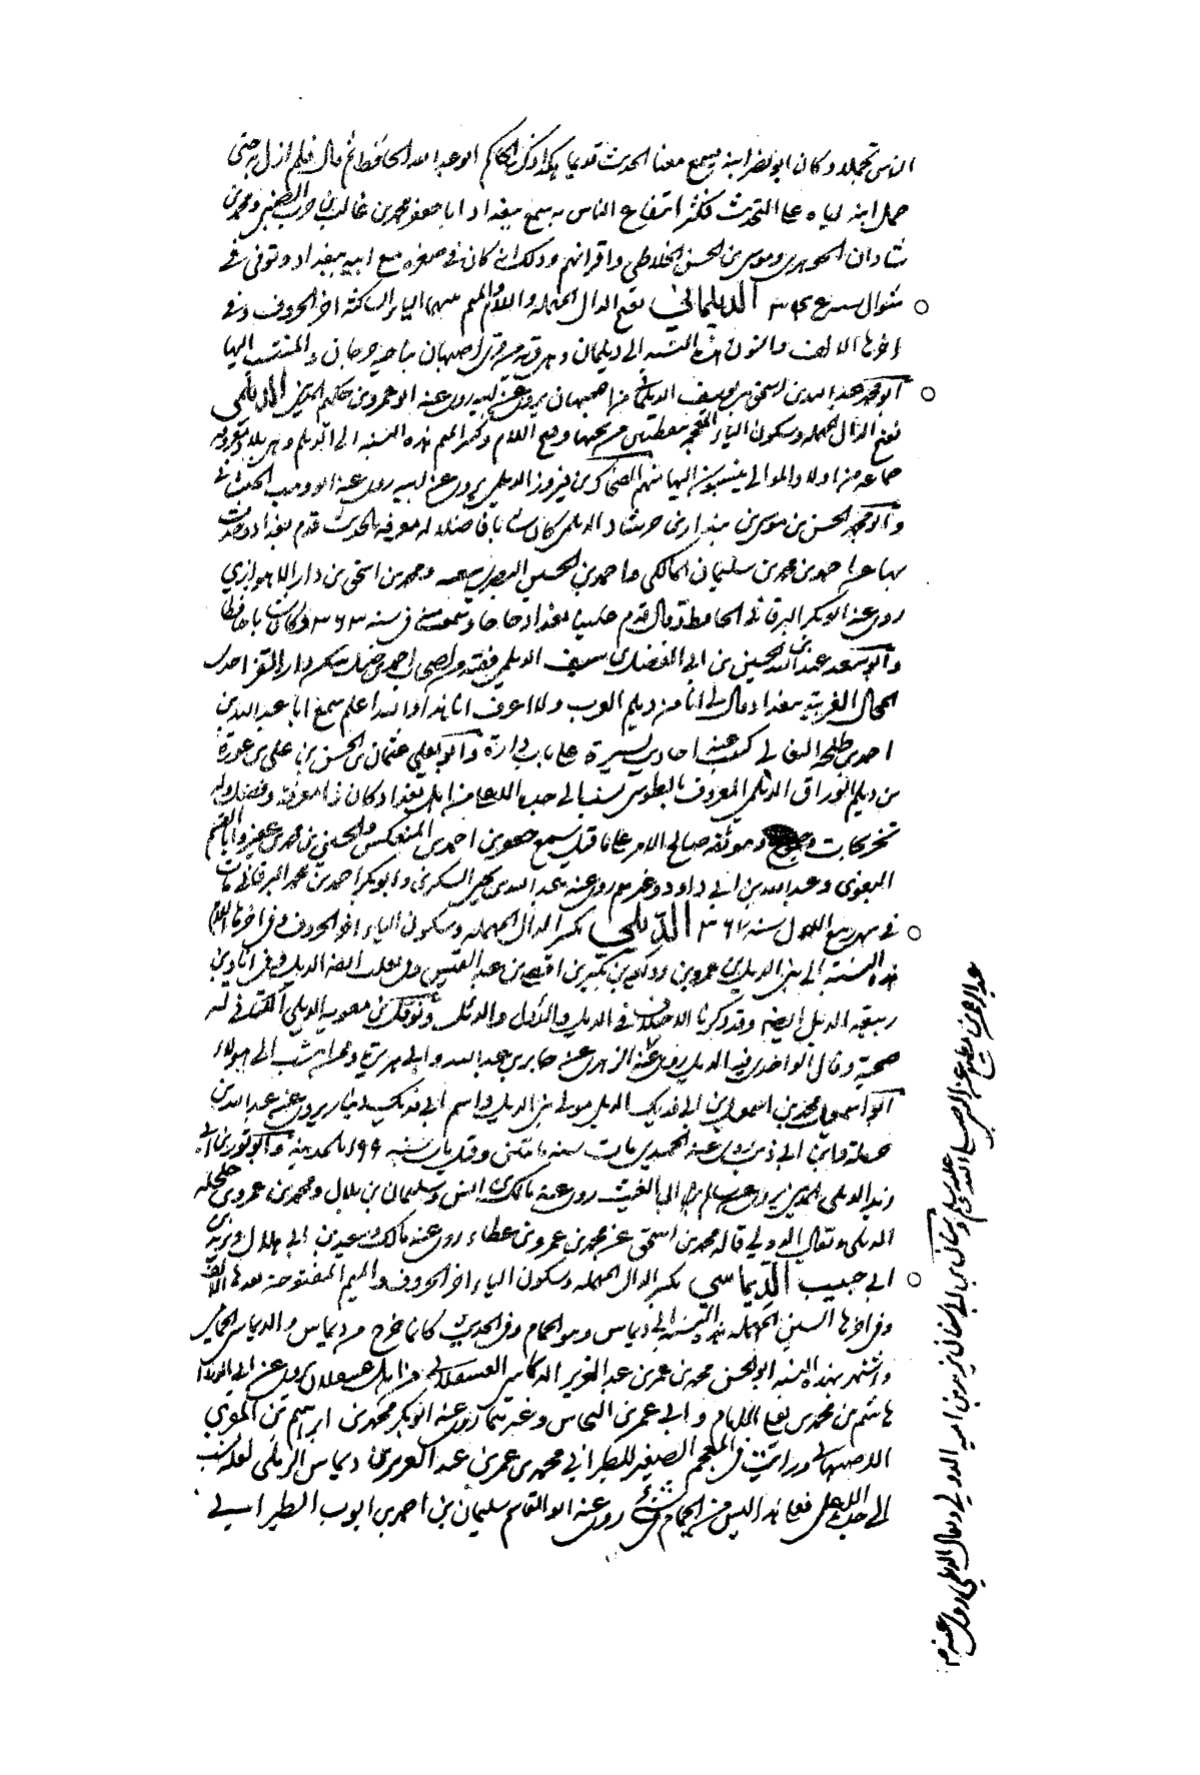 الناس تجملا وكان ابو نصر ابنه يسمع معنا الحديث قديما هكذا ذكر الحاكم ابو عبد الله الحافظ ثم قال فلم ازل به حتى
حمل ابنه اياه على التحديث فكثر انتفاع الناس به سمع ببغداد ابا جعفر محمد بن غالب بن حرب الضبي ومحمد بن
شاذان الجوهري وموسى بن الحسن الجلاجلي واقرانهم وذلك انه كان في صغره مع ابيه ببغداد وتوفي في
شوال سنة الديلماني بفتح الدال المهملة واللام والميم بينهما الياء الساكنة اخر الحروف وفي
اخرها الالف والنون هذه النسبة الى ديلمان وهي قرية من قرى اصبهان بناحية جرجان والمنتسب اليها
ابو محمد عبد الله بن اسحق بن يوسف الديلماني من اصبهان يروي عن ابيه روى عنه ابو عمرو بن حكيم المديني الديلمي
بفتح الدال المهملة وسكون الياء المعجمة بنقطتين من تحتها وفتح اللام وكسر الميم هذه النسبة الى الديلم وهي بلاد معروفة
جماعة من اولاد الموالي ينسبون اليها منهم الضحاك بن فيروز الديلمي يروي عن ابيه روى عنه ابو وهب الجيشاني
وابو محمد الحسن بن موسى بن بندار بن الديلمي كان شابا فاضلا له معرفة بالحديث قدم بغداد وحدث
بها عن احمد بن محمد بن سليمان المالكي واحمد بن الحسين البصري ومحمد بن اسحق بن دارا الاهوازي
روى عنه ابو بكر البرقاني الحافظ وقال قدم علينا بغداد حاجا وسمعت منه في سنة ٣٦٣ وكان شابا حافظا
وابو سعد عبد الله بن الحسين بن ابي الفضل بن سيف الديلمي فقيه من اصحاب احمد بن حنبل سكن دار القز احدى
المحال الغربية ببغداد وقال لي انا من ديلم العرب ولا اعرف انا هذا والله اعلم سمع ابا عبد الله بن
احمد بن طلحة النعالي كتبت عنه احاديث يسيرة على باب داره وابو يعلى عثمان بن الحسن بن علي بن عزرة
بن ديلم الوراق الديلمي المعروف بالطوسي نسب الى جده الاعلى من اهل بغداد وكان ذا معرفة وفضل وله
تخريجات وجموع وهو ثقة صالح الامر سمع جعفر بن احمد بن المغلس والحسين بن محمد بن عفير وابا القسم
البغوي وعبد الله بن ابي داود وغيرهم روى عنه عبد الله بن يحيى السكري وابو بكر احمد بن محمد البرقاني مات
في شهر ربيع الاول سنة ٣٦٧ الديلي بكسر الدال المهملة وسكون الياء اخر الحروف وفي اخرها اللام
هذه النسبة الى بني الديل بن عمرو بن وديعة بن لكيز بن افصى بن عبد القيس وفي تغلب ايضا الديل وفي اياد بن
ربيعة الديل ايضا وقد ذكرنا الاختلاف في الديل والدؤل والدئل ونوفل بن معوية الديلي الكناني له
صحبة وقال الواقدي فيه الديلي روى عنه الزهري عن جابر بن عبد الله وابي هريرة وممن انتسب الى هؤلاء
ابو اسمعيل محمد بن اسمعيل بن ابي فديك الديلي مولى بني الديل واسم ابي فديك دينار يروي عنه عبد الله بن
وابن ابي ذئب روى عنه الحميدي مات سنة مائتين وقيل مات سنة ١٩٩ بالمدينة وابو ثور
زيد الديلي المديني يروي عن سالم ابي الغيث روى عنه مالك بن انس وسليمان بن بلال ومحمد بن عمرو بن حلحلة
الديلي ويقال الدولي قاله محمد بن اسحق عن محمد بن عمرو بن عطاء روى عنه مالك وسعيد بن ابي هلال ويزيد بن
ابي حبيب الديماسي بكسر الدال المهملة وسكون الياء اخر الحروف والميم المفتوحة بعدها الالف
وفي اخرها السين المهملة هذه النسبة الى ديماس وهو الحمام وفي الحديث كانما خرج من ديماس والديماس الحمام
واشتهر بهذه النسبة ابو الحسن محمد بن عمر بن عبد العزيز الديماسي العسقلاني من اهل عسقلان يروي عن ابي
هاشم بن محمد بن يعلى الامام وابي عمر بن النحاس وغيرهما روى عنه ابو بكر محمد بن ابراهيم بن المقري
الاصبهاني ورايت في المعجم الصغير للطبراني محمد بن عمر بن عبد العزيز بن ديماس الرملي لعله نسب
الى جده الاعلى فعلى هذا ليس من الحمام في شيء روى عنه ابو القاسم سليمان بن احمد بن ايوب الطبراني
عبد الرحمن بن مطيع عن النبي صلى الله عليه وسلم وسنان بن ابي سنان يزيد بن امية الدولي ويقال الديلي روى عنه